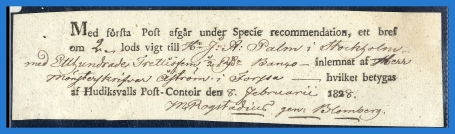 Med första Post afgår under Specie recommendation, ett bref
om 2 lods vigt till Hr J: A: Palm i Stockholm
med Etthundrade Trettiofem Banco inlemnat af Herr
Mönsterskrifver i Forssa hvilket betygas
af Hudiksvalls Post-Contoir den 8 Februarii 1828.
Rogstadius gen. Blomberg.